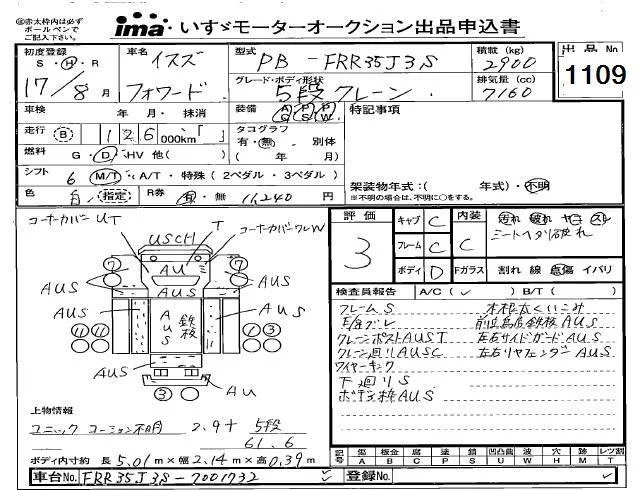 ㊟赤太枠内は必ず
ボールペンで
ご記入下さい。
ima いすゞモーターオークション出品申込書
出品 No
1109
初度登録
S・H・R
17/8月
車名
イスズ
フォワード
型式
PB-FRR35J3S
グレード・ボディ形状
5段クレーン
積載 (kg)
2900
排気量 (cc)
7160
車検 年 月・抹消
装備 AC PS PW
特記事項
走行 B 126000km「 」
タコグラフ
有・無 別体
( 年 月)
燃料 G・D・HV 他( )
シフト 6 M/T・A/T・特殊(2ペダル・3ペダル)
架装物年式:( 年式)・不明
※不明の場合は、不明に○をする。
色 白 指定 R券 有・無 11,240 円
コーナーカバーUT
T
コーナーカバーワレW
USCH
AU
7
7
AUS
AUS
AUS
AUS
AUS
鉄板
AUS
11
11
1
3
AUS
3
AU
評価
3
キャブ C
フレーム C
ボディ D
内装
C
汚れ 破れ ヤニ スレ
シートヘタリ破れ
Fガラス 割れ 線 飛傷 イバリ
検査員報告 A/C(✓) B/T( )
フレームS
クレーンポストAUST
クレーン回りAUSC
ワイヤーキンク
下回りS
AUS
木根太くいこみ
鉄板AUS
左右サイドガードAUS
左右リヤフェンダーAUS
上物情報
ユニック 2.9t 5段
61.6
ボディ内寸約 長5.01m×巾2.14m×高0.39m
記号
傷 板金 腐 塗 錆 凹凸凹 波 穴 時 レツ割
A B C P S U W H M T
車台No. FRR35J3S-7001732
登録No.